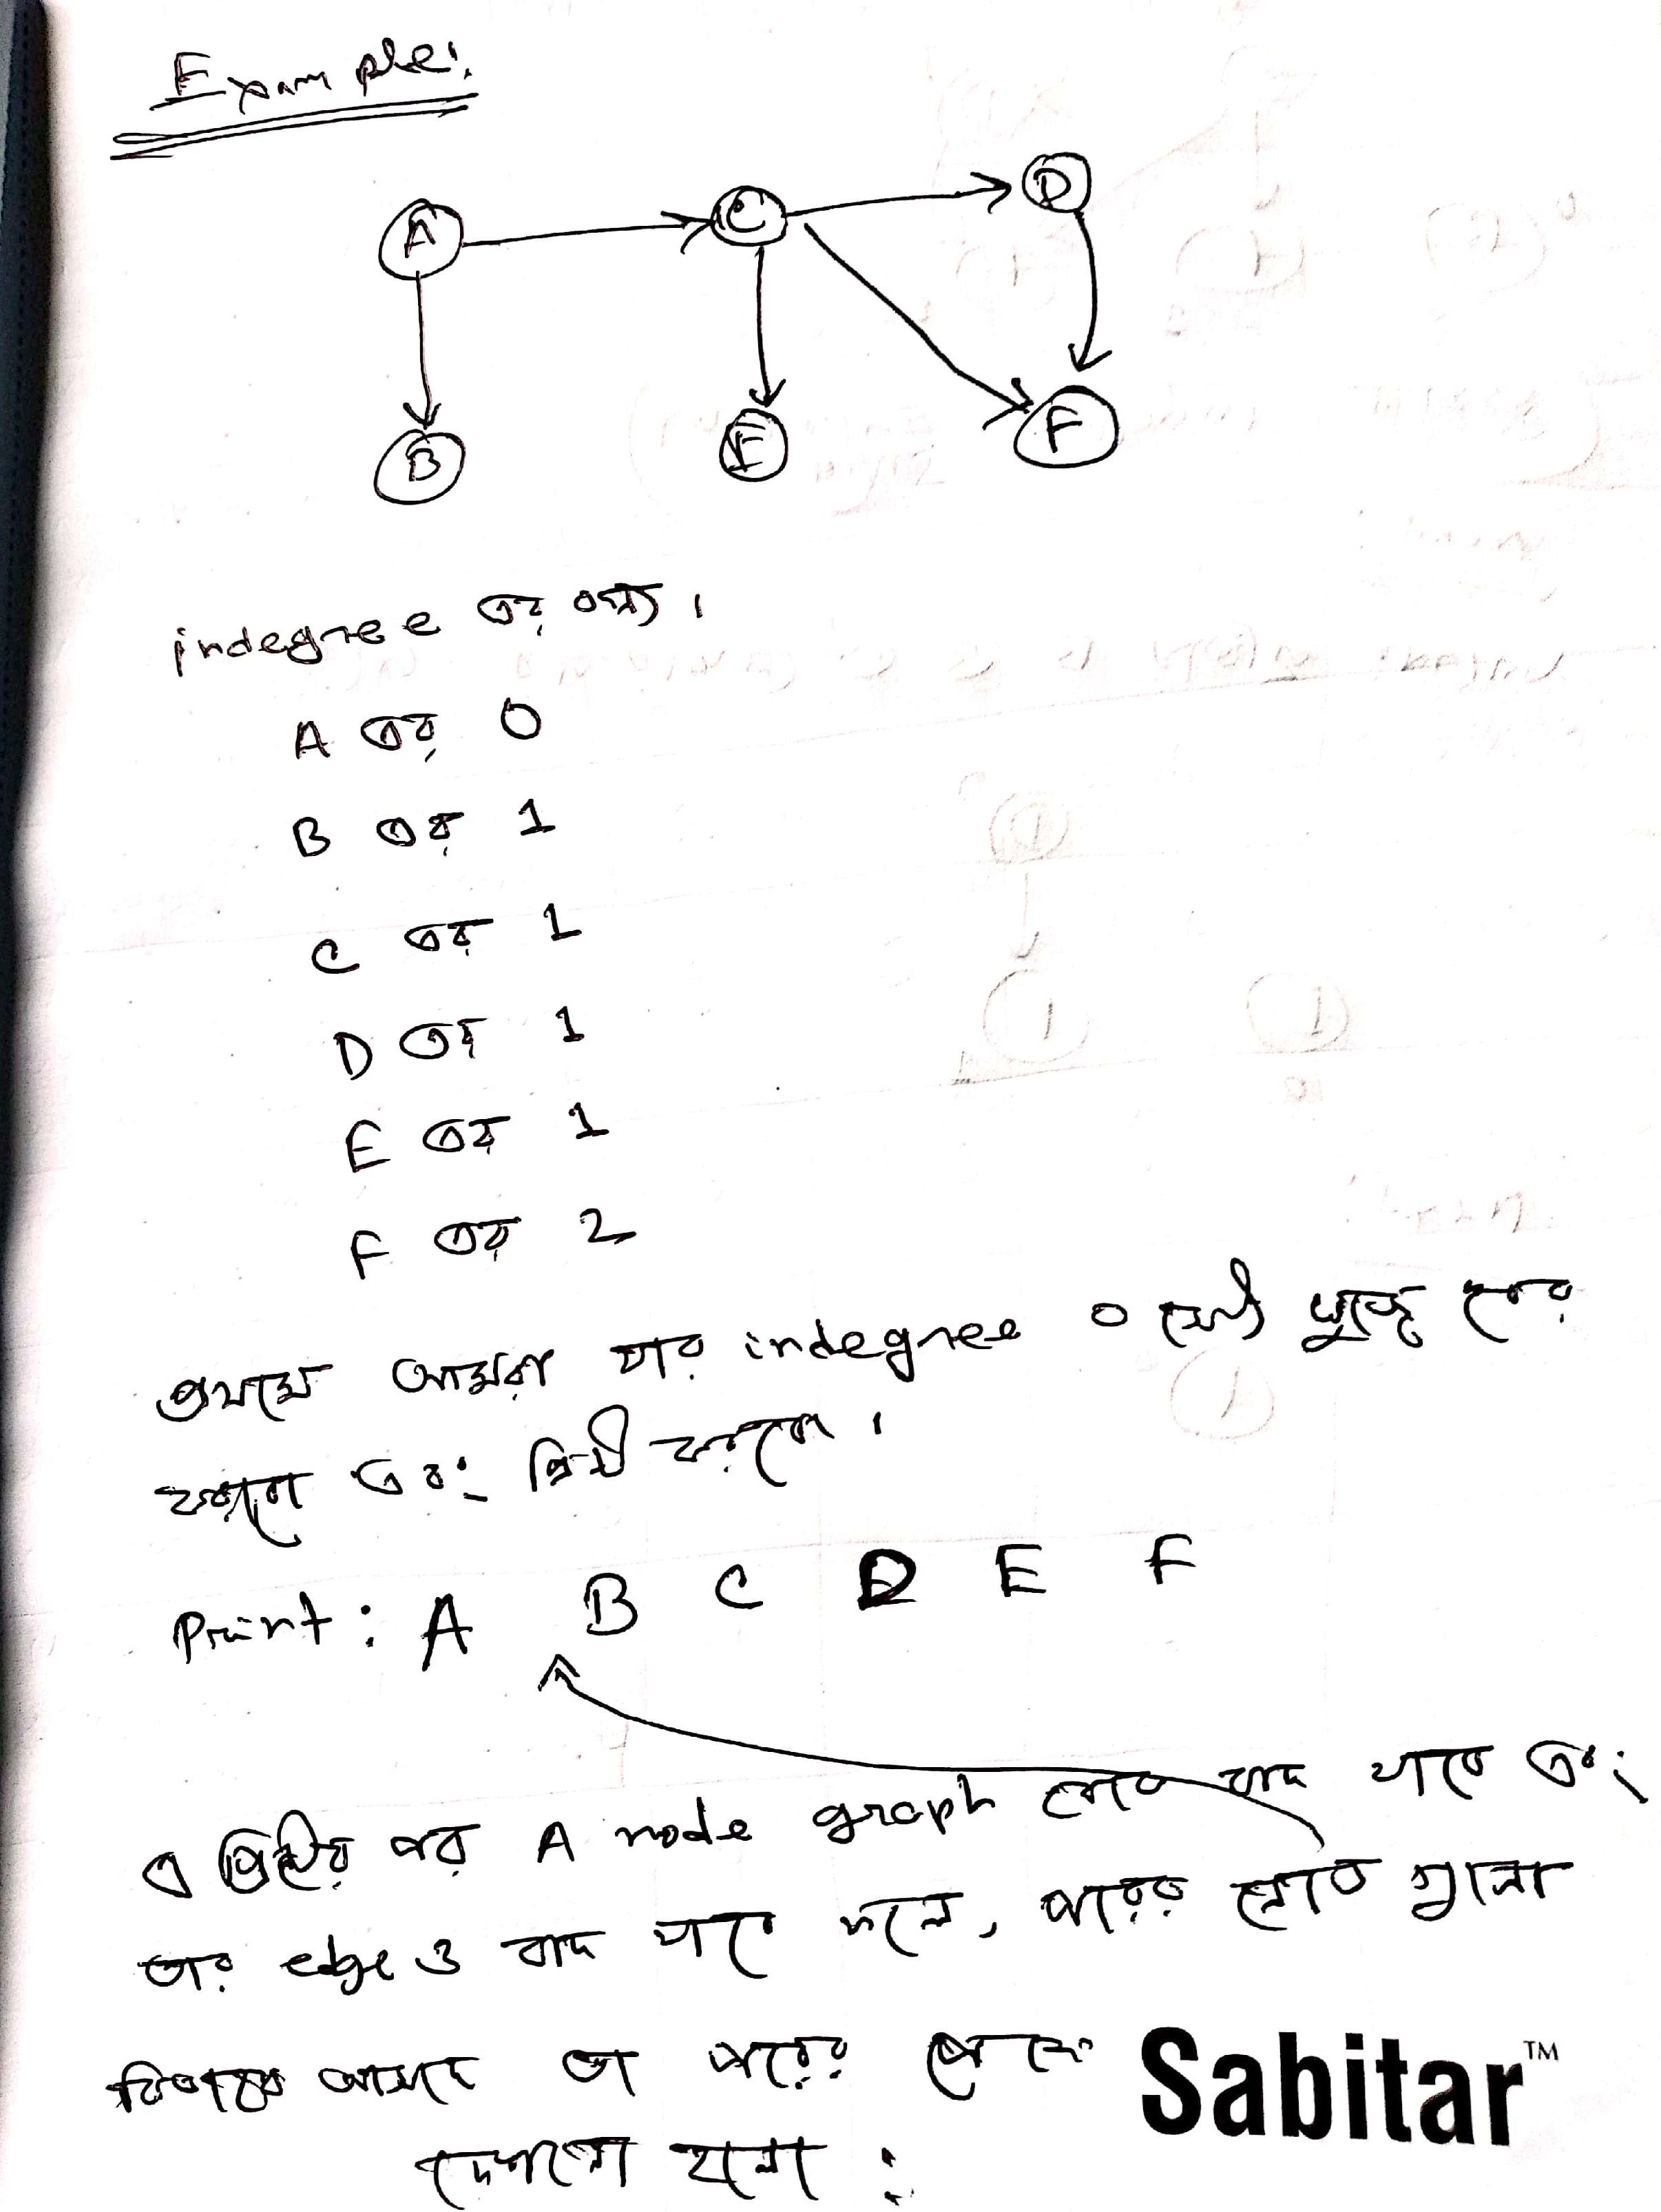 Example:
A C D
B E F
indegree এর জন্য।
A এর 0
B এর 1
C এর 1
D এর 1
E এর 1
F এর 2
প্রথমে আমরা যার indegree 0 সেটা খুজে বের
করবো এবং প্রিন্ট করবো।
Print: A B C D E F
এ প্রিন্টের পর A node graph থেকে বাদ যাবে এবং
তার edge ও বাদ যাবে ফলে, পরের নোড গুলো
কিভাবে আসবে তা পরের পেজে
দেখানো হলো :
Sabitar™